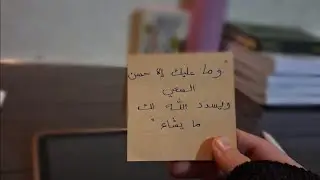 "وما عليك إلا حسن
السعي
ويسدد الله لك
ما يشاء"